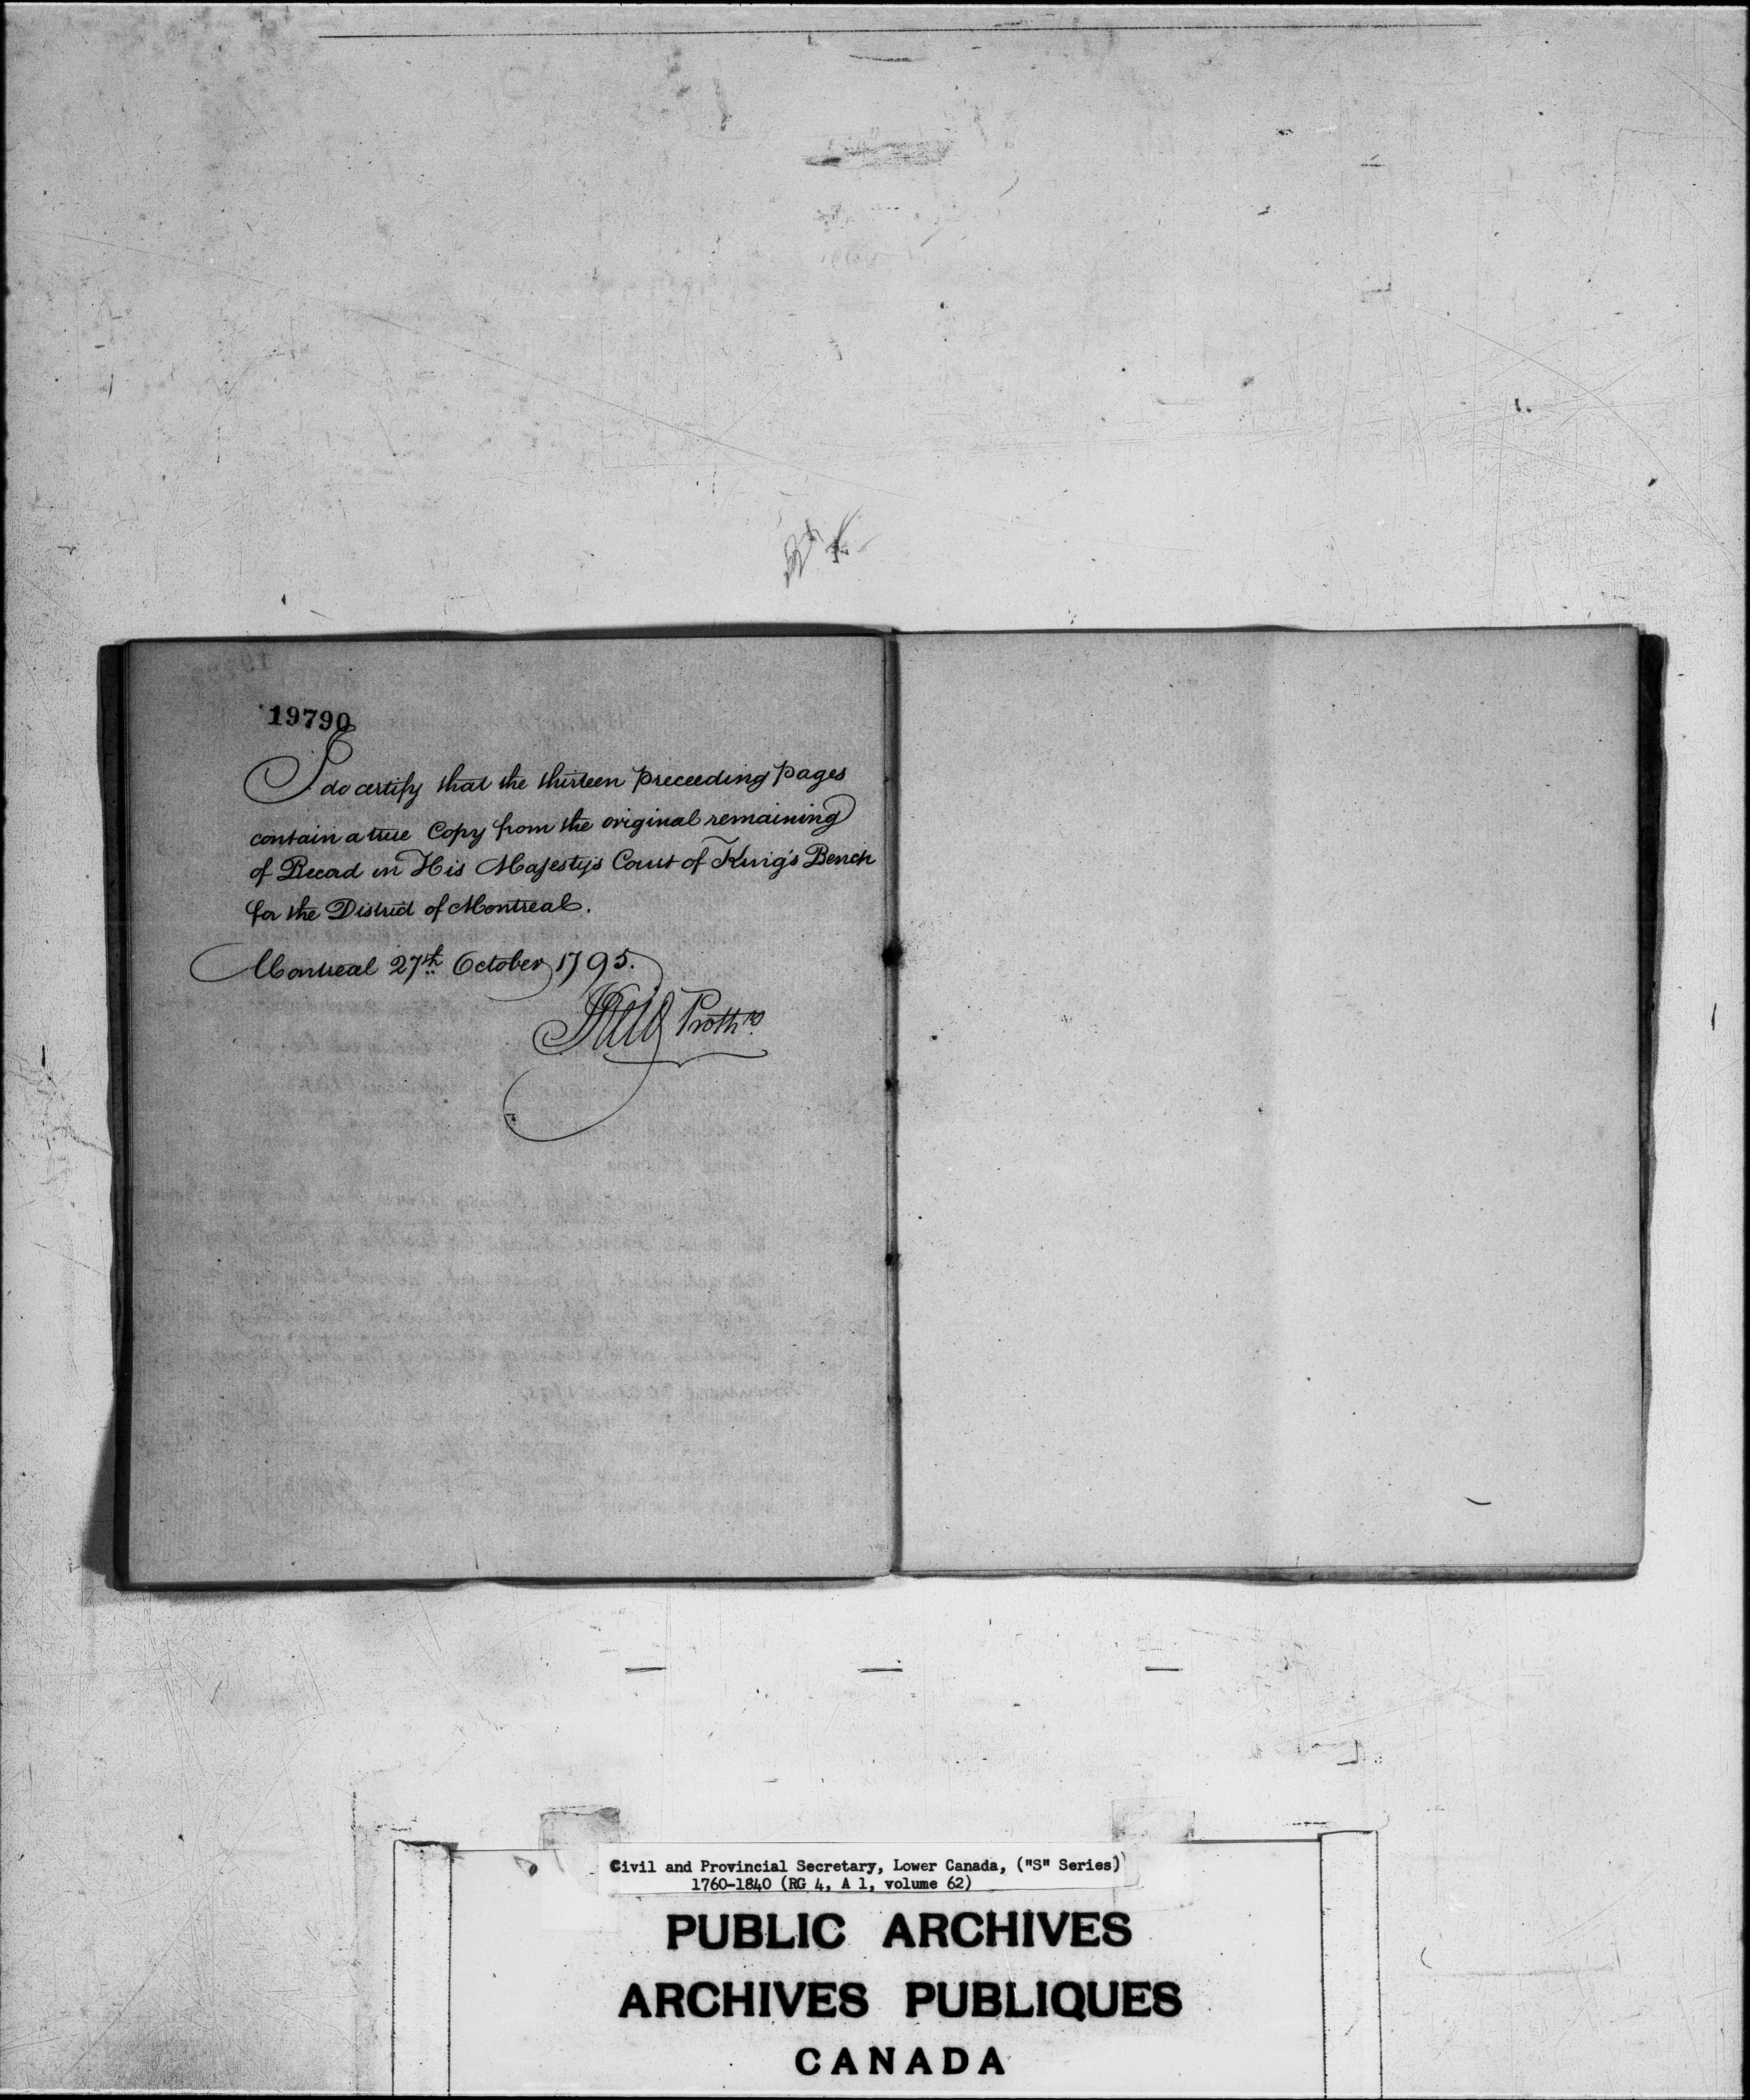 19790
I do certify that the thirteen preceeding pages
contain a true Copy from the original remaining
of Record in His Majesty's Court of King's Bench
for the District of Montreal.
Montreal 27th October 1795.
JReid Prothry
Civil and Provincial Secretary, Lower Canada, ("S" Series)
1760-1840 (RG 4, A 1, volume 62)
PUBLIC ARCHIVES
ARCHIVES PUBLIQUES
CANADA